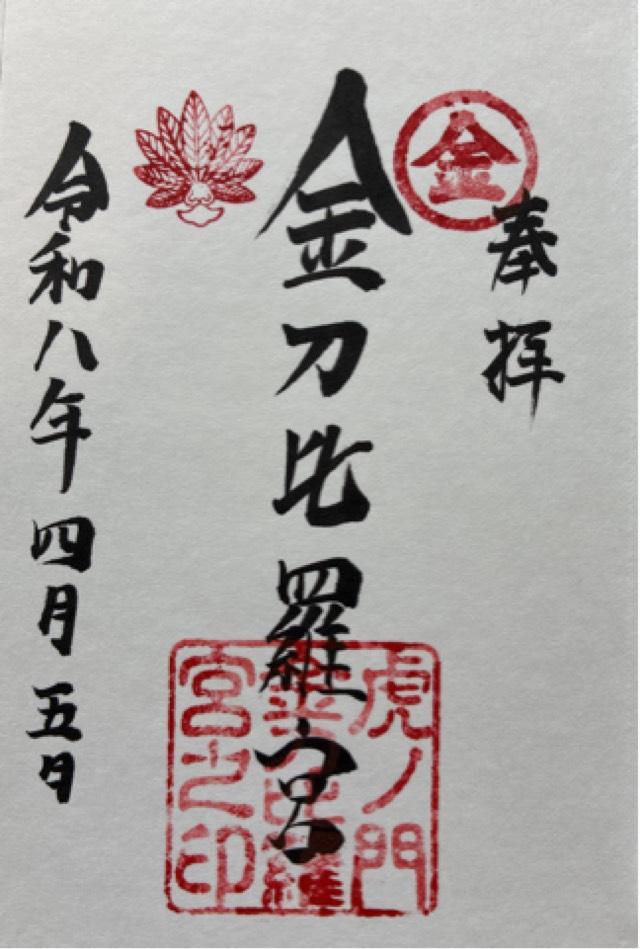 奉拝
金
金刀比羅宮
虎ノ門
金刀比羅
宮之印
令和八年四月五日